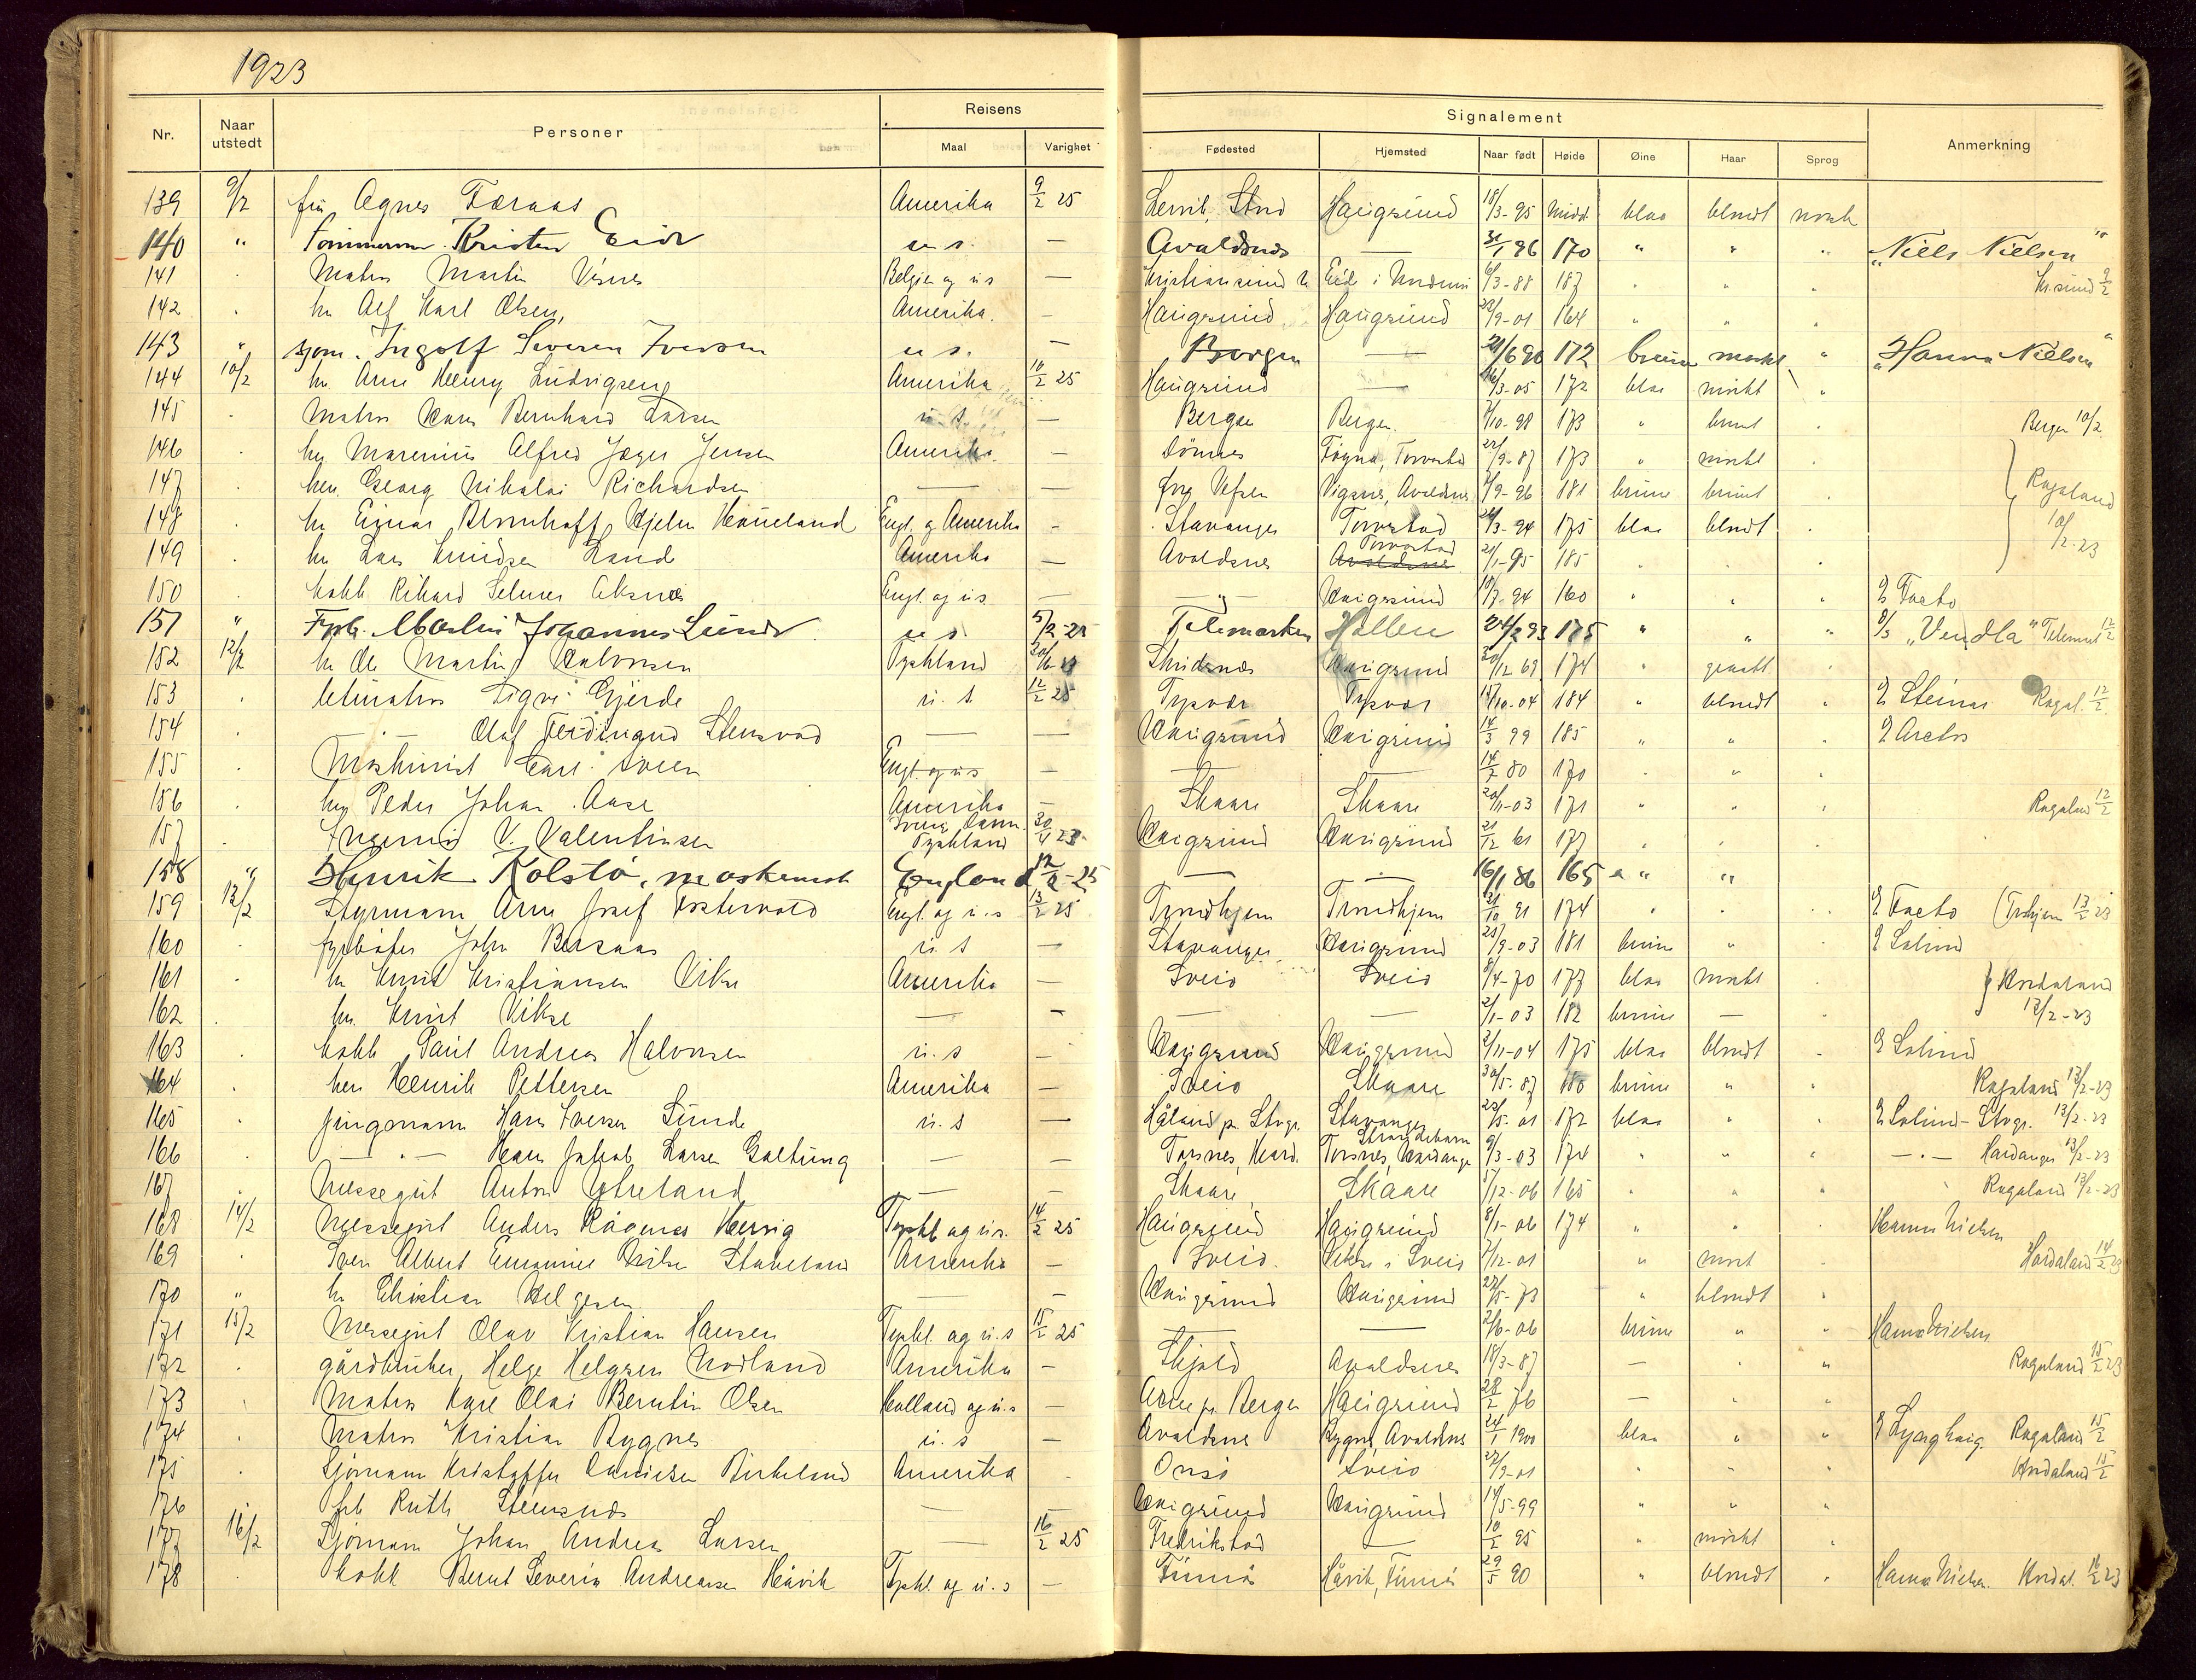 1923
Nr. Naar utstedt Personer Reisens Maal Varighet Signalement Fødested Hjemsted Naar født Høide Øine Haar Sprog Anmerkning
139 9/2 fru Agnes Færaas Amerika 9/2 25 Lervik, Stord Haugesund 18/3-95 midd blaa blondt norsk
140 " Tømmerm. Kristen Eide u.s. — Avaldsnes — 31/1 96 170 " " " "Niels Nielsen"
141 . Matros Martin Visnes Belgien og u.s — Kristiansund N 6/3-88 187 " " . Kr.sund 9/2
142 . hr Alf Karl Olsen, Amerika. — Haugesund Haugesund 23/9-01 164 " " "
143 " sjøm. Ingolf Severin Iversen u s. — Bergen — 21/6 90 172 brune mørkt " "Hanna Nielsen"
144 10/2 hr. Arne Henry Ludvigsen Amerika 10/2 25 Haugesund — 16/3-05 172 blaa mørkt "
145 . Matros Hans Bernhard Larsen u. s. — Bergen Bergen. 7/10-98 173 " brunt Bergen 10/2
146 . hr Marenius Alfred Jæger Jensen Amerika. — Dønnes Torvastad 22/9-87 173 " mørkt .
147 . hr. Georg Nikolai Richardsen — — Vefsen Vigsnes, Avaldsnes 7/9-96 181 brune brunt . Rogaland 10/2-23
148 . hr Einar Hjelm Haueland Engl. og Amerika - Stavanger Torvestad 24/3-94 175 blaa blondt .
149 . hr Lars Knudsen Lande Amerika — Avaldsnes Torvestad 21/1-95 185 . . .
150 . kokk Rikard Selmer Aksnes Engl. og u.s. — — " — Haugesund 18/7-94 160 " " " E Facto
151 " Fyrb. Martin Johannes Lunde u s. 5/2-25 Telemarken Hollen 24/2 93 175 " " " S/S "Vendla" Telemark 12/2
152 12/2 hr Ole Martin Halvorsen Tyskland 20/6 23 Skudesnes Haugesund 20/12 69 174 " graatt .
153 . letmatros Sigve Gjerde u. s 12/2 25 Tysvær Tysvær 14/10-04 184 " blondt " E Steinar Rogal. 12/2
154 . — " — Olaf Ferdinand Stensvad — — Haugesund Haugesund 14/3 99 185 " " . E Arctos
155 . Maskinist Carl Sveen Engl. og u s — — — 14/2 80 170 . " .
156 . hr Peder Johan Aase Amerika — Skaare Skaare 20/11-03 171 " " . Rogaland 12/2
157 . Ingeniør V. Valentinsen Sverig, Danm. Tyskland 30/4 23 Haugesund Haugesund 21/12 61 177 . .
158 " Henrik Kolstø, maskinist England 12/2-25 — — 16/1 86 165 " "
159 13/2 Styrmann Arne Josef Østervold Engl. og u.s 13/2 25 Trondhjem Trondhjem 21/10 91 174 " . . E Facto (Trhjem 13/2 23
160 . fyrbøter John Bersaas u. s — Stavanger Haugesund 25/9-03 181 brune " E Solund
161 . hr Knut Kristiansen Vikse Amerika — Sveio Sveio 8/4-70 177 blaa mørkt . } Hordaland
162 . hr. Knut Vikse — — — — 2/1-03 182 brune — . 13/2-23
163 . kokk Paul Andreas Halvorsen u. s — Haugesund Haugesund 2/11-04 175 blaa blondt . E Solund
164 . herr Henrik Pettersen Amerika — Sveio Skaare 30/5-87 180 brune " . Rogaland 13/2-23
165 . Jungmann Hans Iversen Sunde u. s — Håland p. Stvgr. Stavanger 23/5-01 172 blaa " . E Solund - Stvgr. 13/2-23
166 . — " — Hans Jakob Larsen Galtung — — Torsnes, Hard. Strandebarm Torsnes, Hardanger 9/3-03 174 " " . — " — Hardanger 13/2-23
167 . Messegut Anton Ytreland — — Skaare Skaare 17/12-06 165 . " " " Rogaland 13/2-23
168 14/2 Messegut Anders Ragnar Hervig Tyskl. og u.s. 14/2 25 Haugesund Haugesund 8/1-06 174 " " . Hanna Nielsen
169 . Sven Albert Emanuel Stakeland Amerika — Sveio. Vikse i Sveio 7/12-01 " mørkt . Hordaland 14/2 23
170 " hr Christian Helgesen — — Haugesund Haugesund 22/5-73 " blondt "
171 15/2 Messegut Olav Kristian Hansen Tyskl. og u.s 15/2 25 — — 2/6-06 brune " " Hanna Nielsen
172 . gårdbruker Helge Helgesen Nodland Amerika — Skjold Avaldsnes 18/3-87 — . " Rogaland 15/2 23
173 . Matros Kare Olai Berntin Olsen Holland og u.s — Arne pr. Bergen Haugesund 28/2 76 — " "
174 . Matros Kristian Rygnes u. s — Avaldsnes Rygnes, Avaldsnes 24/1 1900 blaa " " E Lyderhorn Rogaland 15/2
175 . Sjømann Kristoffer Danielsen Birkeland Amerika . Onsø Sveio 22/9-01 " " " Hordaland 15/2
176 frk Ruth Stensnes — — Haugesund Haugesund 14/5-99 " " "
177 16/2 Sjømann Johan Andreas Larsen — 16/2 25 Fredrikstad — 10/2 95 " mørkt .
178 . kokk Bernt Severin Andreassen Håvik Tyskl. og u.s — Finnås Håvik, Finnås 29/5 90 " blondt . Hanna Nielsen. Hordal. 16/2 23